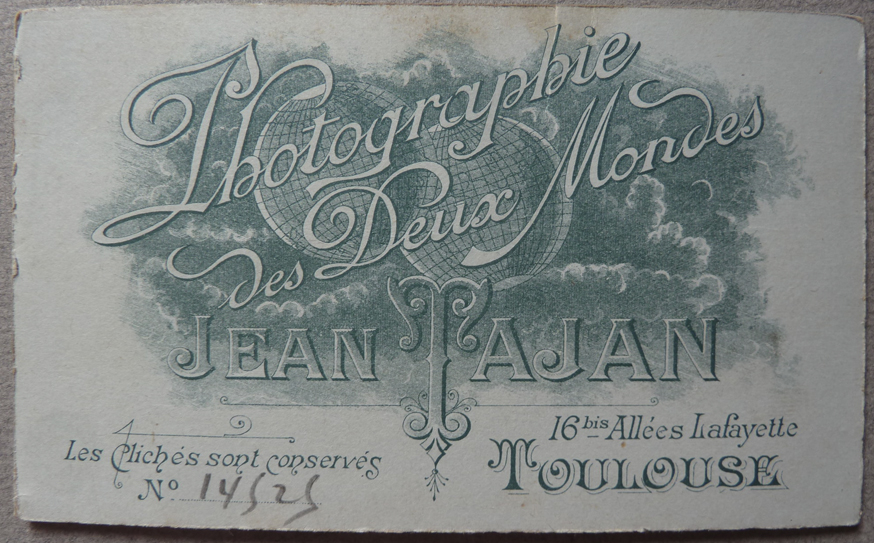 Photographie
des Deux Mondes
JEAN TAJAN
16 bis Allées Lafayette
TOULOUSE
Les Clichés sont conservés
No 14525